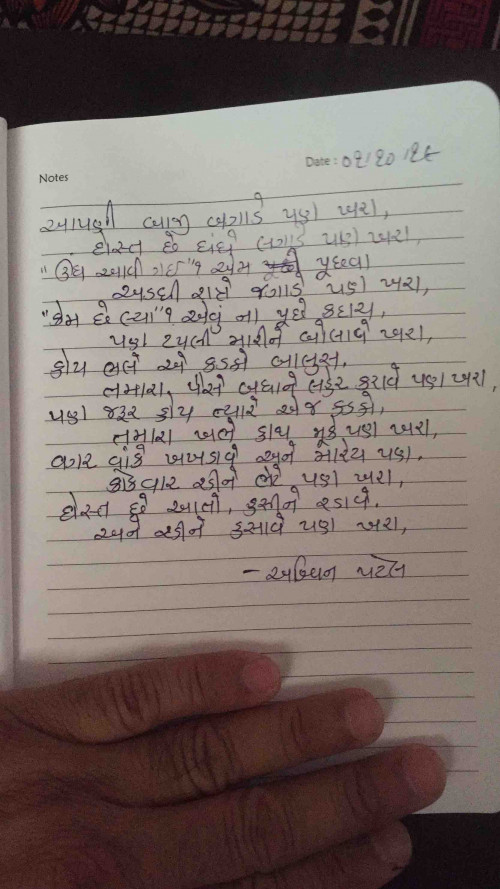 Notes
Date :
આપણી બાજી બગાડે પણ ખરા,
દોસ્ત છે ધંધે લગાડે પણ ખરા,
"ઊંઘ આવી ગઈ"? એમ પૂછવા
અડધી રાતે જગાડે પણ ખરા,
"કેમ છે લ્યા"? એવું ના પૂછે કદાચ
પણ ટપલી મારીને બોલાવે ખરા,
હોય ભલે એ કડકો બાલુસ.
તમારા પૈસે બધાને લહેર કરાવે પણ ખરા,
પણ જરૂર હોય ત્યારે એજ કડકો,
તમારા ખભે હાથ મૂકે પણ ખરા,
વગર વાંકે ખખડાવે અને મારેય પણ.
કોકવાર રડીને ભેટે પણ ખરા,
દોસ્ત છે આતો, હસીને રડાવે.
અને રડીને હસાવે પણ ખરા,
- અશ્વિન પટેલ